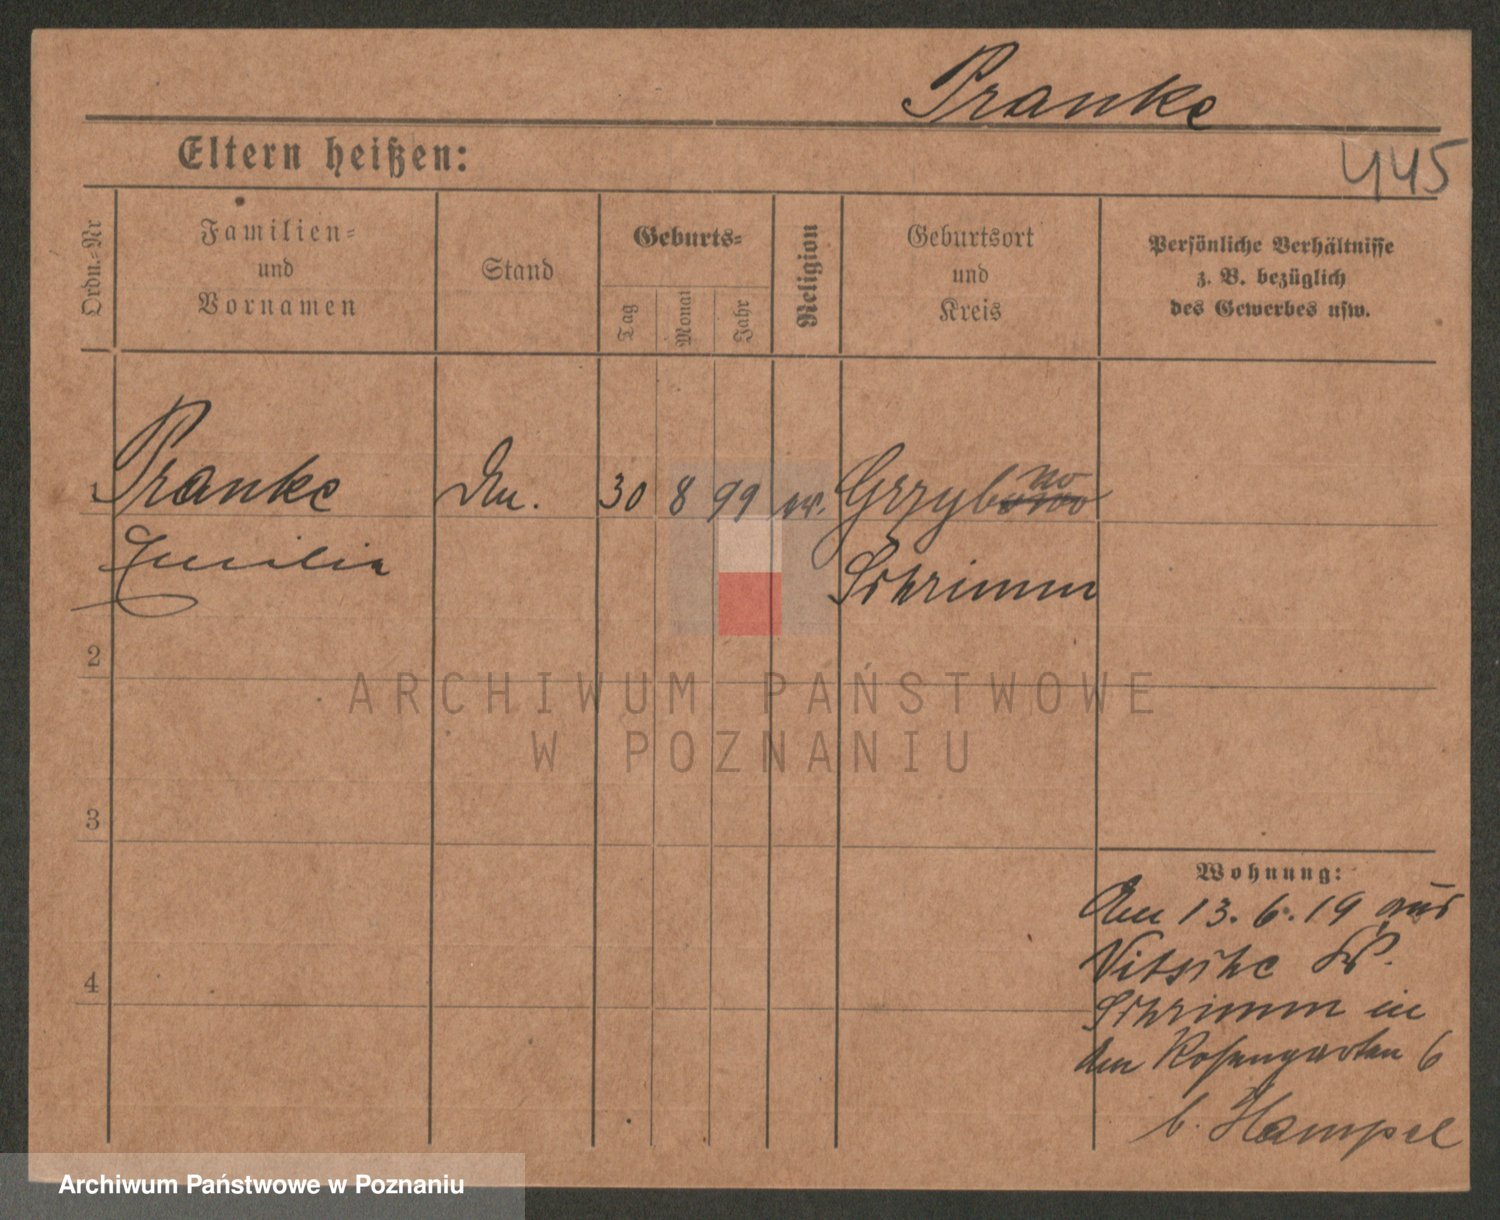 Pranke
445
Eltern heißen:
Ordn.-Nr
Familien-
und
Vornamen
Stand
Geburts-
Tag
Monat
Jahr
Religion
Geburtsort
und
Kreis
Persönliche Verhältnisse
z. B. bezüglich
des Gewerbes usw.
1 Pranke 30 8 99 ev. Grzybno
Emilie Schrimm
2
ARCHIWUM PAŃSTWOWE
W POZNANIU
3
Wohnung:
13. 6. 19 aus
Schrimm in
4
den Rosengarten 6
b. Hampel
Archiwum Państwowe w Poznaniu